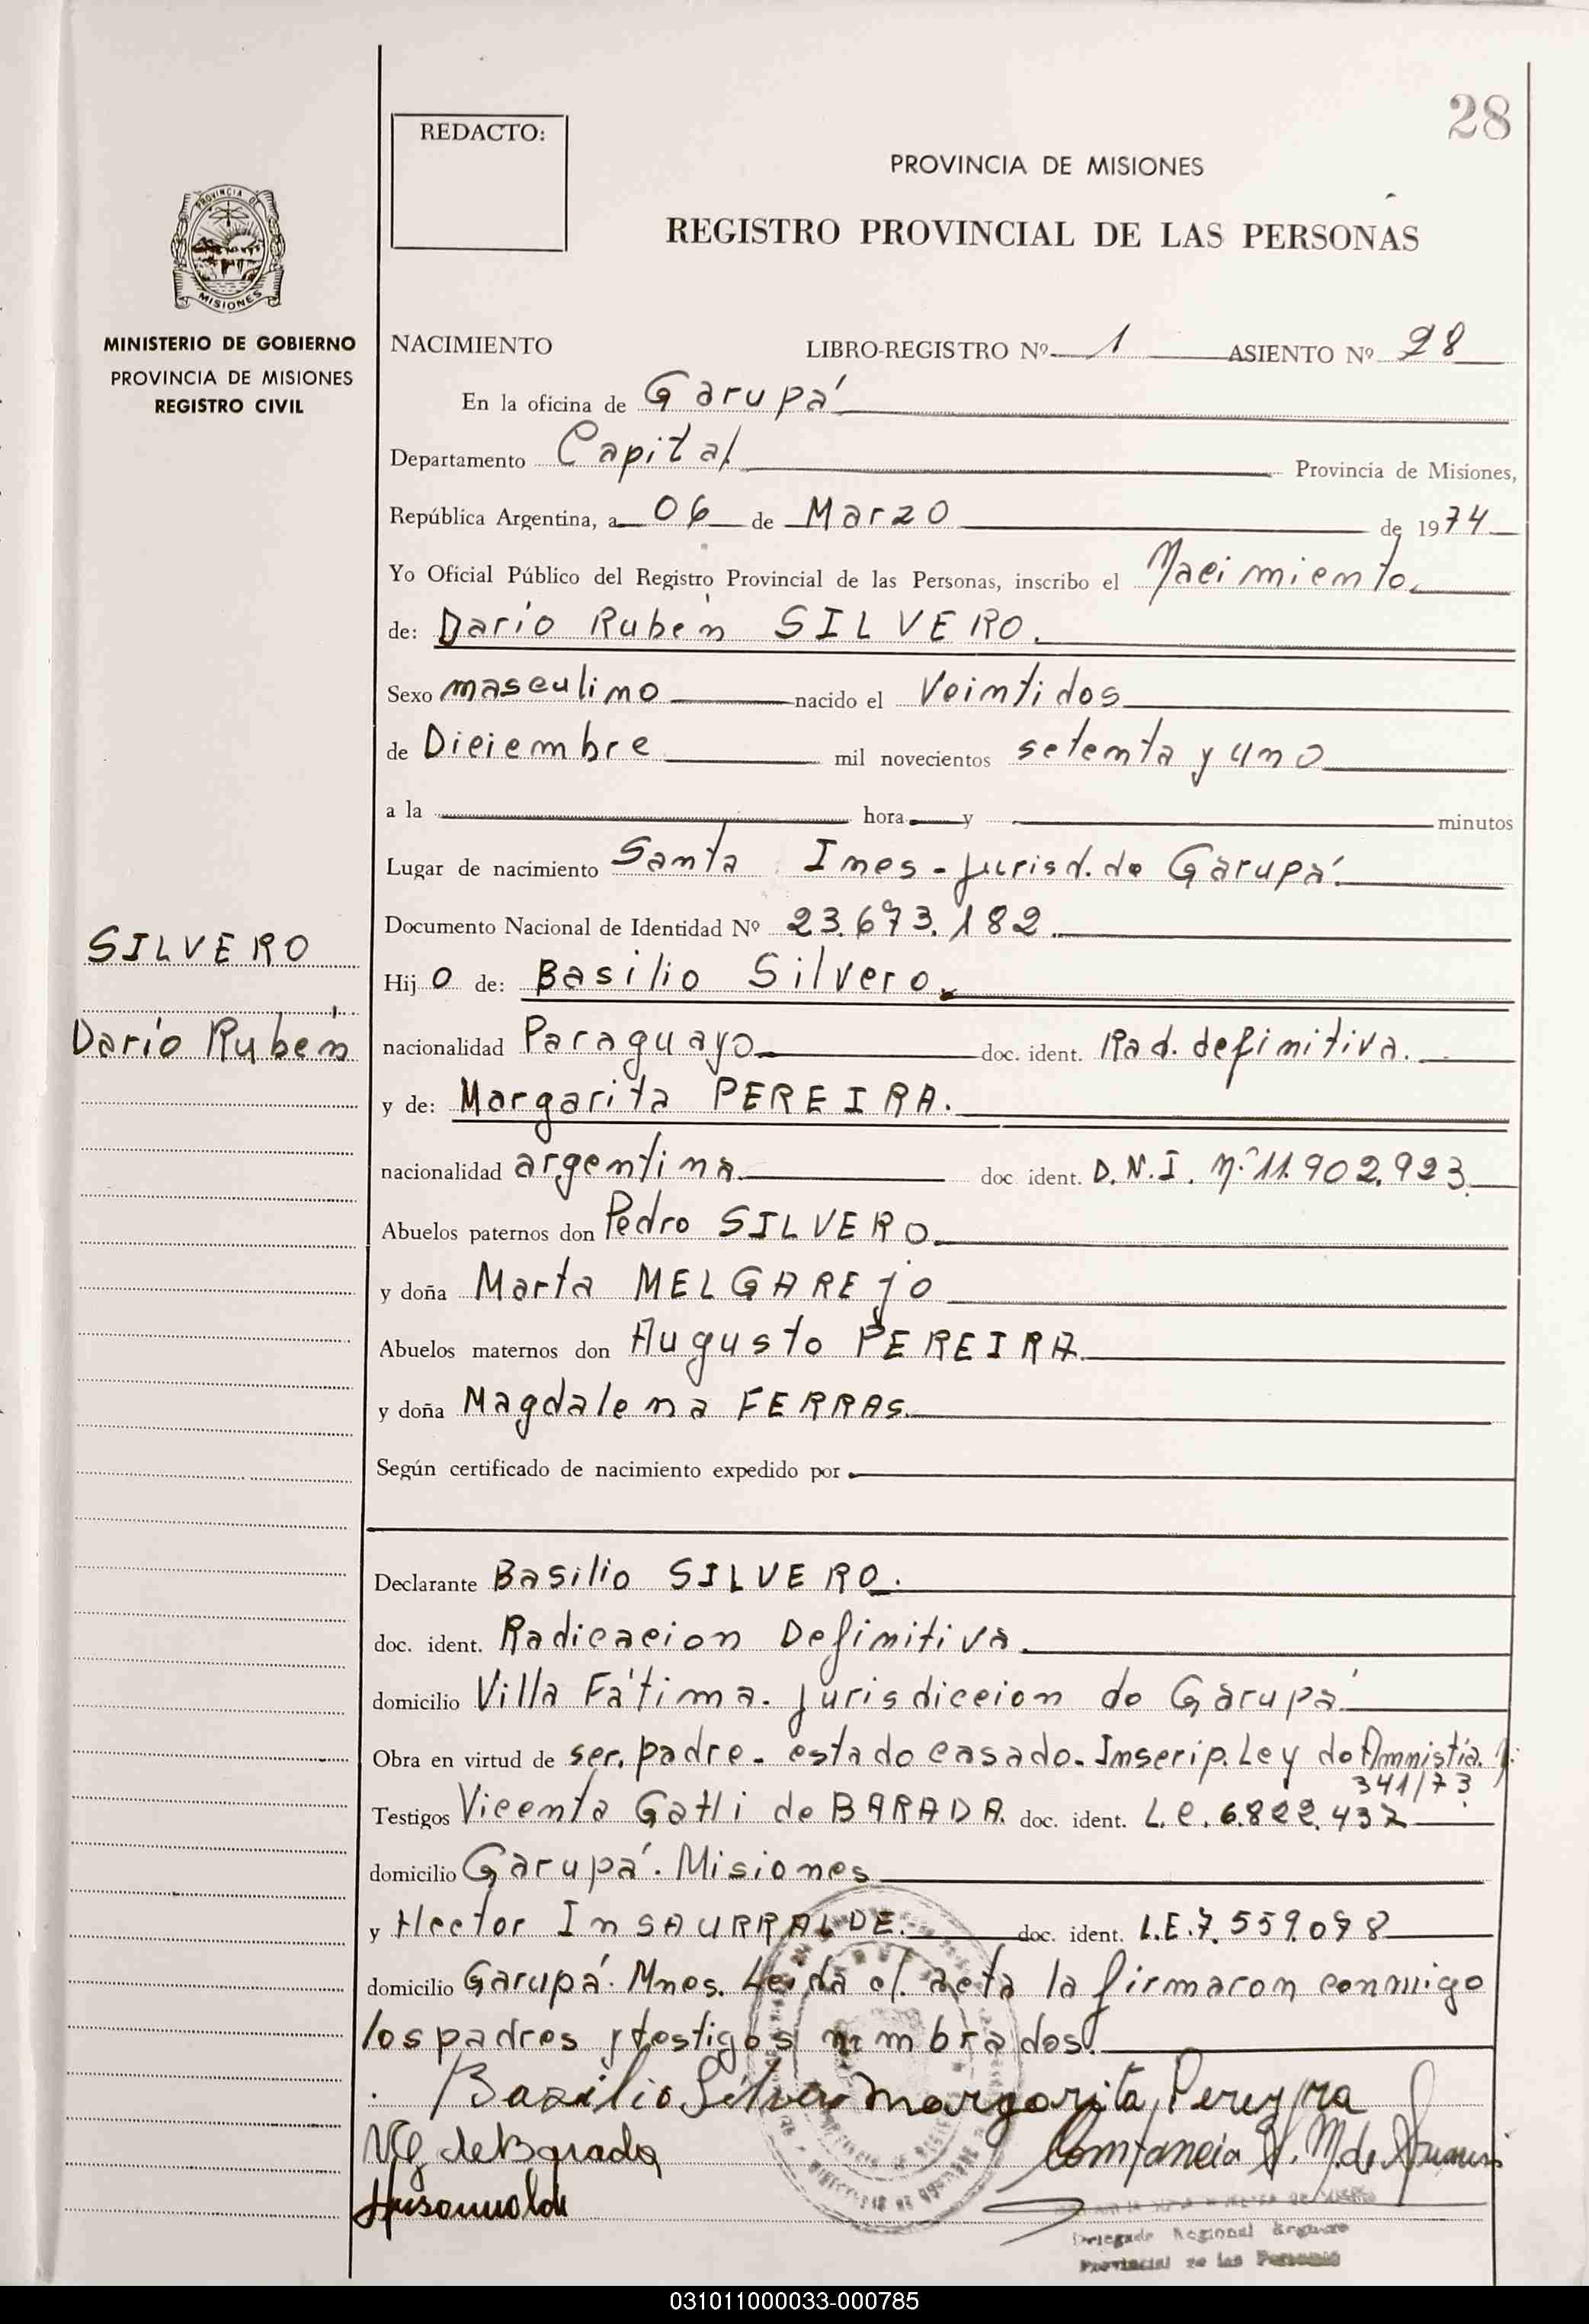 28
REDACTO:
PROVINCIA DE MISIONES
REGISTRO PROVINCIAL DE LAS PERSONAS
PROVINCIA DE
MISIONES
MINISTERIO DE GOBIERNO
PROVINCIA DE MISIONES
REGISTRO CIVIL
NACIMIENTO LIBRO-REGISTRO Nº 1 ASIENTO Nº 28
En la oficina de Garupá
Departamento Capital Provincia de Misiones,
República Argentina, a 06 de Marzo de 1974
Yo Oficial Público del Registro Provincial de las Personas, inscribo el Nacimiento
de: Darío Rubén SILVERO.
Sexo masculino nacido el Veintidos
de Diciembre mil novecientos setenta y uno
a la hora y minutos
Lugar de nacimiento Santa Ines - Jurisd. de Garupá.
Documento Nacional de Identidad Nº 23.673.182.
SILVERO
Darío Rubén
Hijo de: Basilio Silvero.
nacionalidad Paraguayo doc. ident. Rad. definitiva.
y de: Margarita PEREIRA.
nacionalidad argentina doc ident. D.N.I. Nº 11.902.923.
Abuelos paternos don Pedro SILVERO.
y doña Marta MELGAREjO
Abuelos maternos don Augusto PEREIRA
y doña Magdalena FERRAS.
Según certificado de nacimiento expedido por
Declarante Basilio SILVERO.
doc. ident. Radicacion Definitiva.
domicilio Villa Fátima. Jurisdiccion de Garupá
Obra en virtud de ser padre - estado casado - Inscrip. Ley de Amnistía.
341/73
Testigos Vicenta Gatti de BARADA. doc. ident. L.C. 6.822.437
domicilio Garupá. Misiones
y Hector InSAURRALDE. doc. ident. L.E. 7.559.078
domicilio Garupá. Mnes. Leida el acta la firmaron conmigo
los padres y testigos nombrados.
Basilio Silvero Margarita Pereyra
VG de Barada Constancia
Insaurralde
Delegado Regional
Provincial de las Personas
031011000033-000785